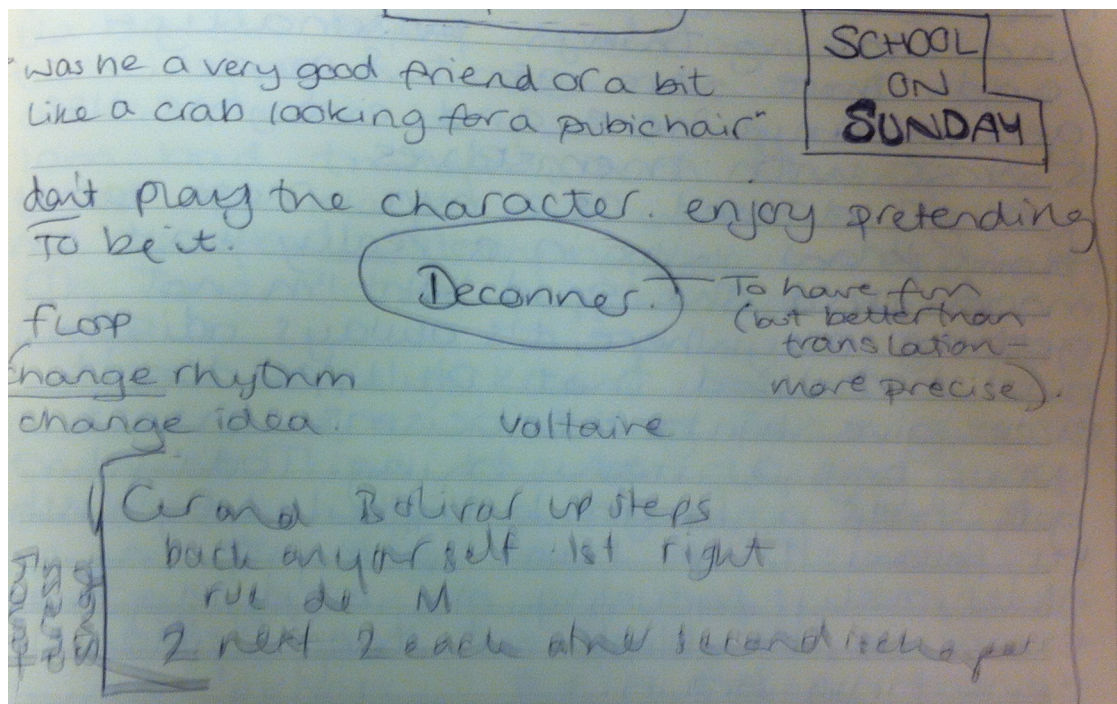 "was he a very good friend or a bit
like a crab looking for a pubic hair"
SCHOOL
ON
SUNDAY
don't play the character. enjoy pretending
To be it.
Deconner.
To have fun
(but better than
translation -
more precise).
flop
Change rhythm
change idea.
Voltaire
Grand Bolivar up steps
back on yourself 1st right
rue de M
2 next 2 each other second is cheaper
fancy
dress
shops